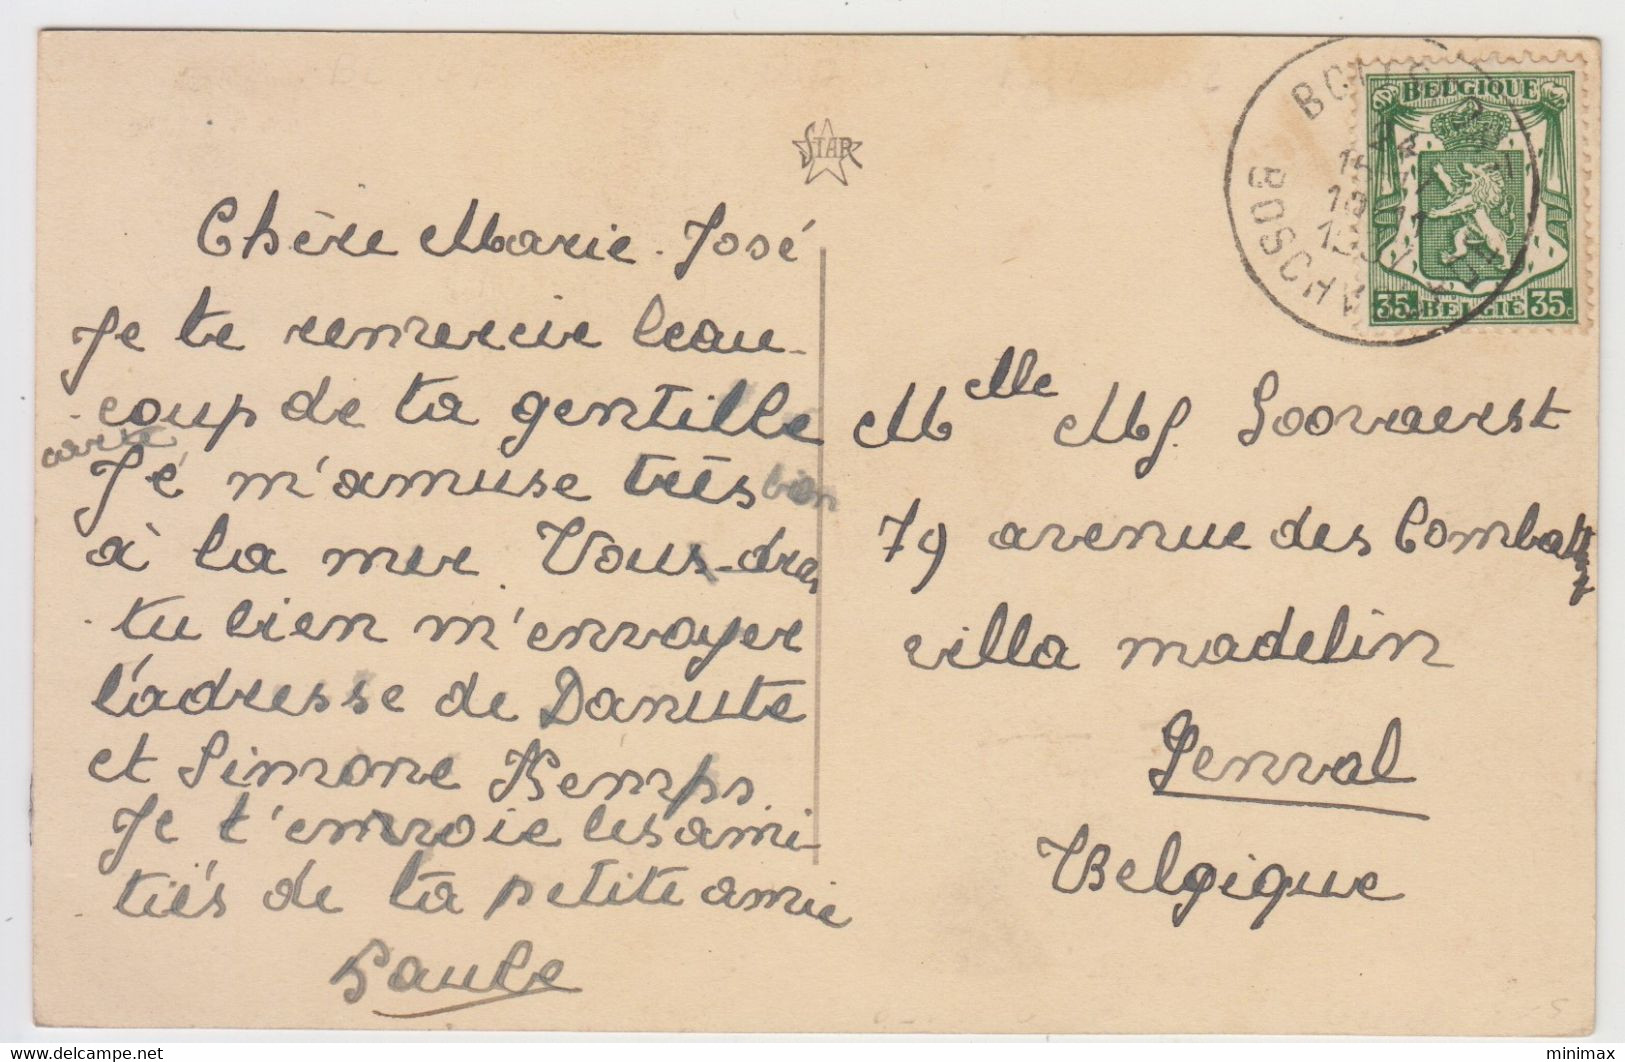 STAR
Chère Marie-José
Je te remercie beau-
coup de ta gentille
carte
Je m'amuse très bien
à la mer. Vous-dras
tu bien m'envoyer
l'adresse de Danute
et Simone Kemps.
Je t'envoie les ami-
tiés de ta petite amie
Paule
BELGIQUE
35c BELGIE 35c
BOSCHVOORDE
Melle MJ. Goovaerst
79 avenue des Combatt
villa madelin
Genval
Belgique
minimax